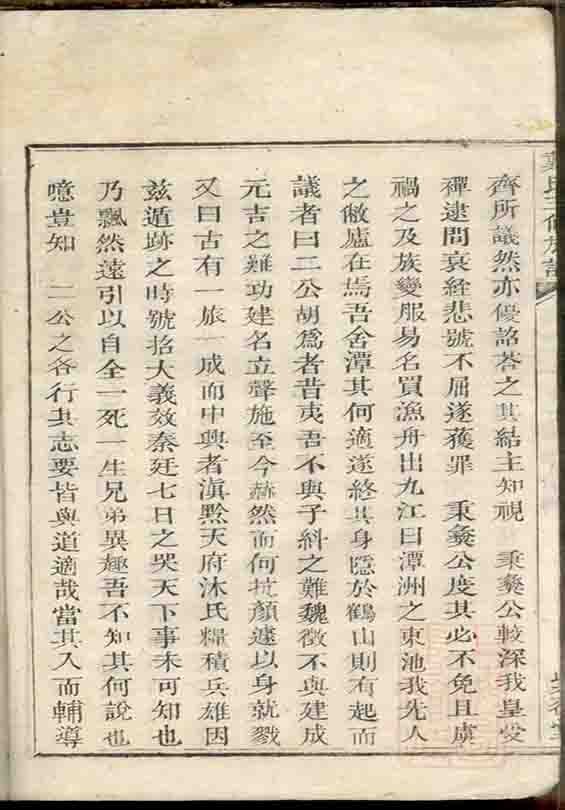 齊所議然亦優詔荅之其結主知視 秉彜公較深我皇受
禪逮問哀絰悲號不屈遂獲罪 秉彜公度其必不免且虞
禍之及族變服易名買漁舟出九江曰潭洲之東池我先人
之敝廬在焉吾舍潭其何適遂終其身隱於鶴山則有起而
議者曰二公胡爲者昔夷吾不與子糾之難魏徵不與建成
元吉之難功建名立聲施至今赫然而何抗顏遽以身就戮
又曰古有一旅一成而中興者滇黔天府沐氏糧積兵雄因
玆遁跡之時號招大義效秦廷七日之哭天下事未可知也
乃飄然遠引以自全一死一生兄弟異趣吾不知其何說也
噫豈知 二公之各行其志要皆與道適哉當其入而輔導